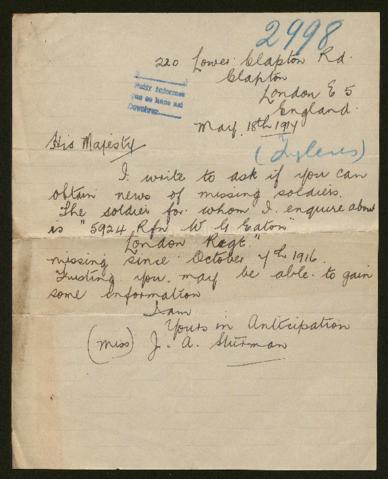 2998
220 Lower Clapton Rd.
Clapton
London E 5
England.
May. 18th 1917
(Ingleses)
His Majesty
I write to ask if you can
obtain news of missing soldiers.
The soldier for whom I enquire about
is "5924, Rfn W. G Eaton
London Regt."
missing since October 7th 1916.
Trusting you may be able to gain
some Information
I am
Yours in Anticipation
(Miss) J. A. Sturman